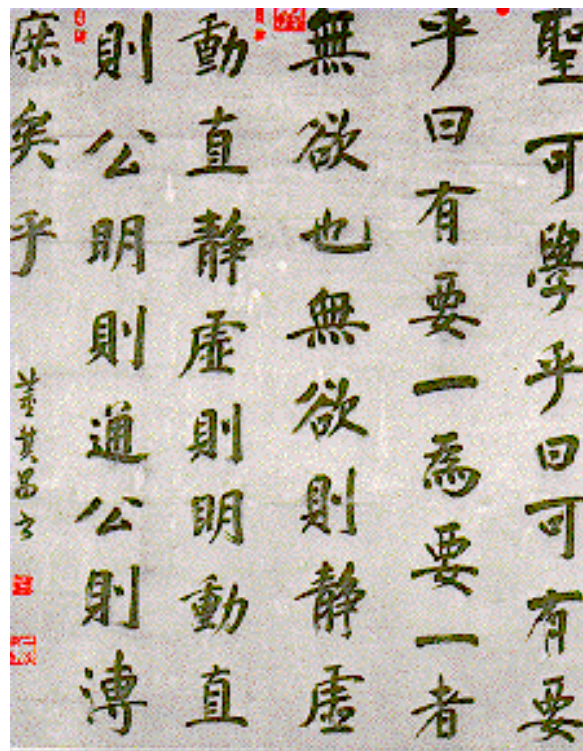 聖可學乎曰可有要
乎曰有要一為要一者
無欲也無欲則靜虛
動直靜虛則明動直
則公明則通公則溥
庶矣乎
董其昌書